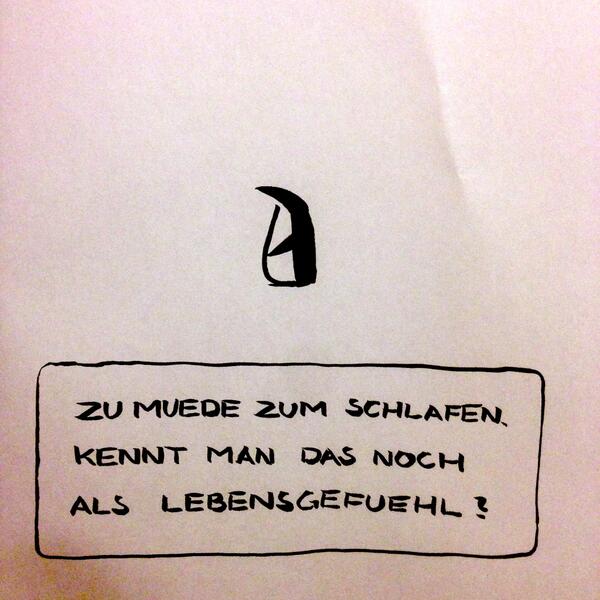 ZU MUEDE ZUM SCHLAFEN.
KENNT MAN DAS NOCH
ALS LEBENSGEFUEHL?